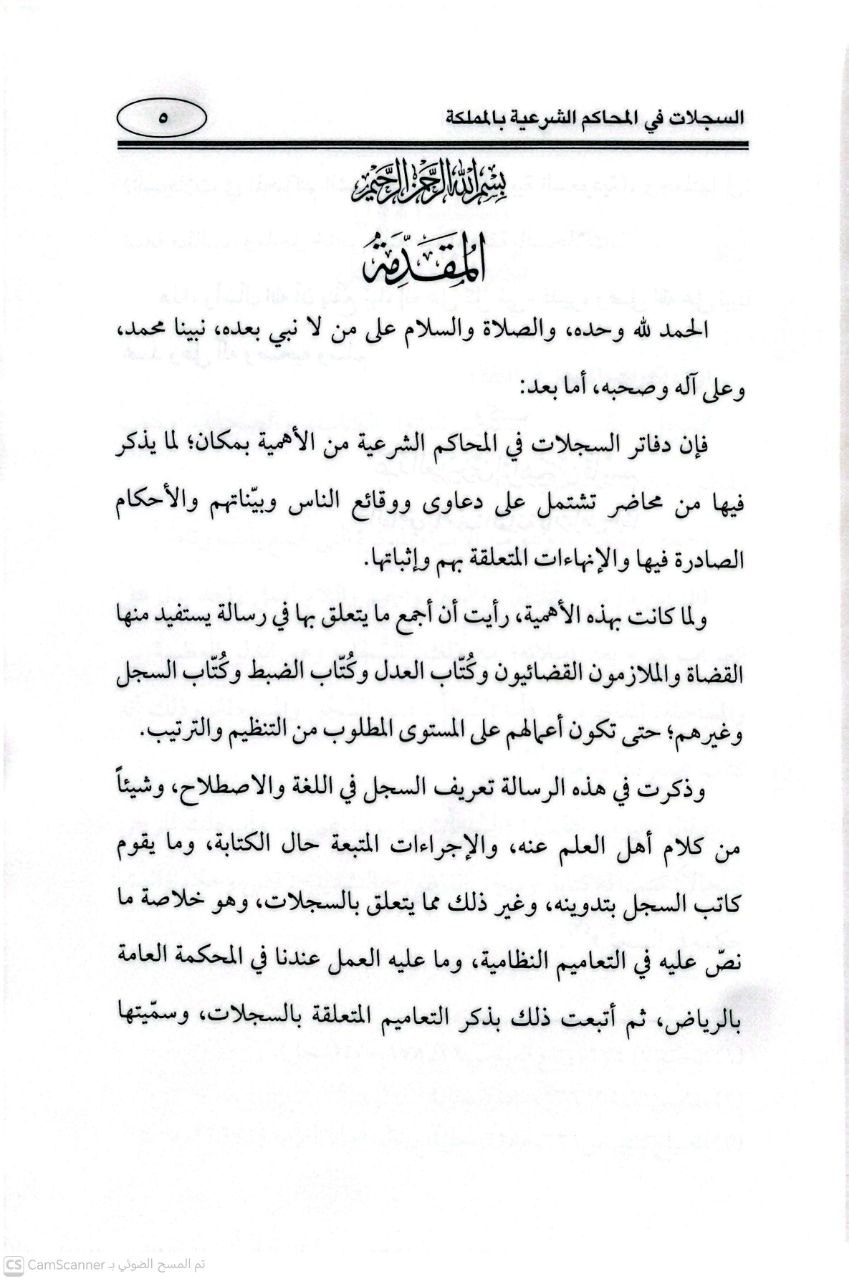 السجلات في المحاكم الشرعية بالمملكة
٥
بسم الله الرحمن الرحيم
المُقَدِّمَة
الحمد لله وحده، والصلاة والسلام على من لا نبي بعده، نبينا محمد،
وعلى آله وصحبه، أما بعد:
فإن دفاتر السجلات في المحاكم الشرعية من الأهمية بمكان؛ لما يذكر
فيها من محاضر تشتمل على دعاوى ووقائع الناس وبيّناتهم والأحكام
الصادرة فيها والإنهاءات المتعلقة بهم وإثباتها.
ولما كانت بهذه الأهمية، رأيت أن أجمع ما يتعلق بها في رسالة يستفيد منها
القضاة والملازمون القضائيون وكُتّاب العدل وكُتّاب الضبط وكُتّاب السجل
وغيرهم؛ حتى تكون أعمالهم على المستوى المطلوب من التنظيم والترتيب.
وذكرت في هذه الرسالة تعريف السجل في اللغة والاصطلاح، وشيئاً
من كلام أهل العلم عنه، والإجراءات المتبعة حال الكتابة، وما يقوم
كاتب السجل بتدوينه، وغير ذلك مما يتعلق بالسجلات، وهو خلاصة ما
نصّ عليه في التعاميم النظامية، وما عليه العمل عندنا في المحكمة العامة
بالرياض، ثم أتبعت ذلك بذكر التعاميم المتعلقة بالسجلات، وسمّيتها
CS CamScanner تم المسح الضوئي بـ